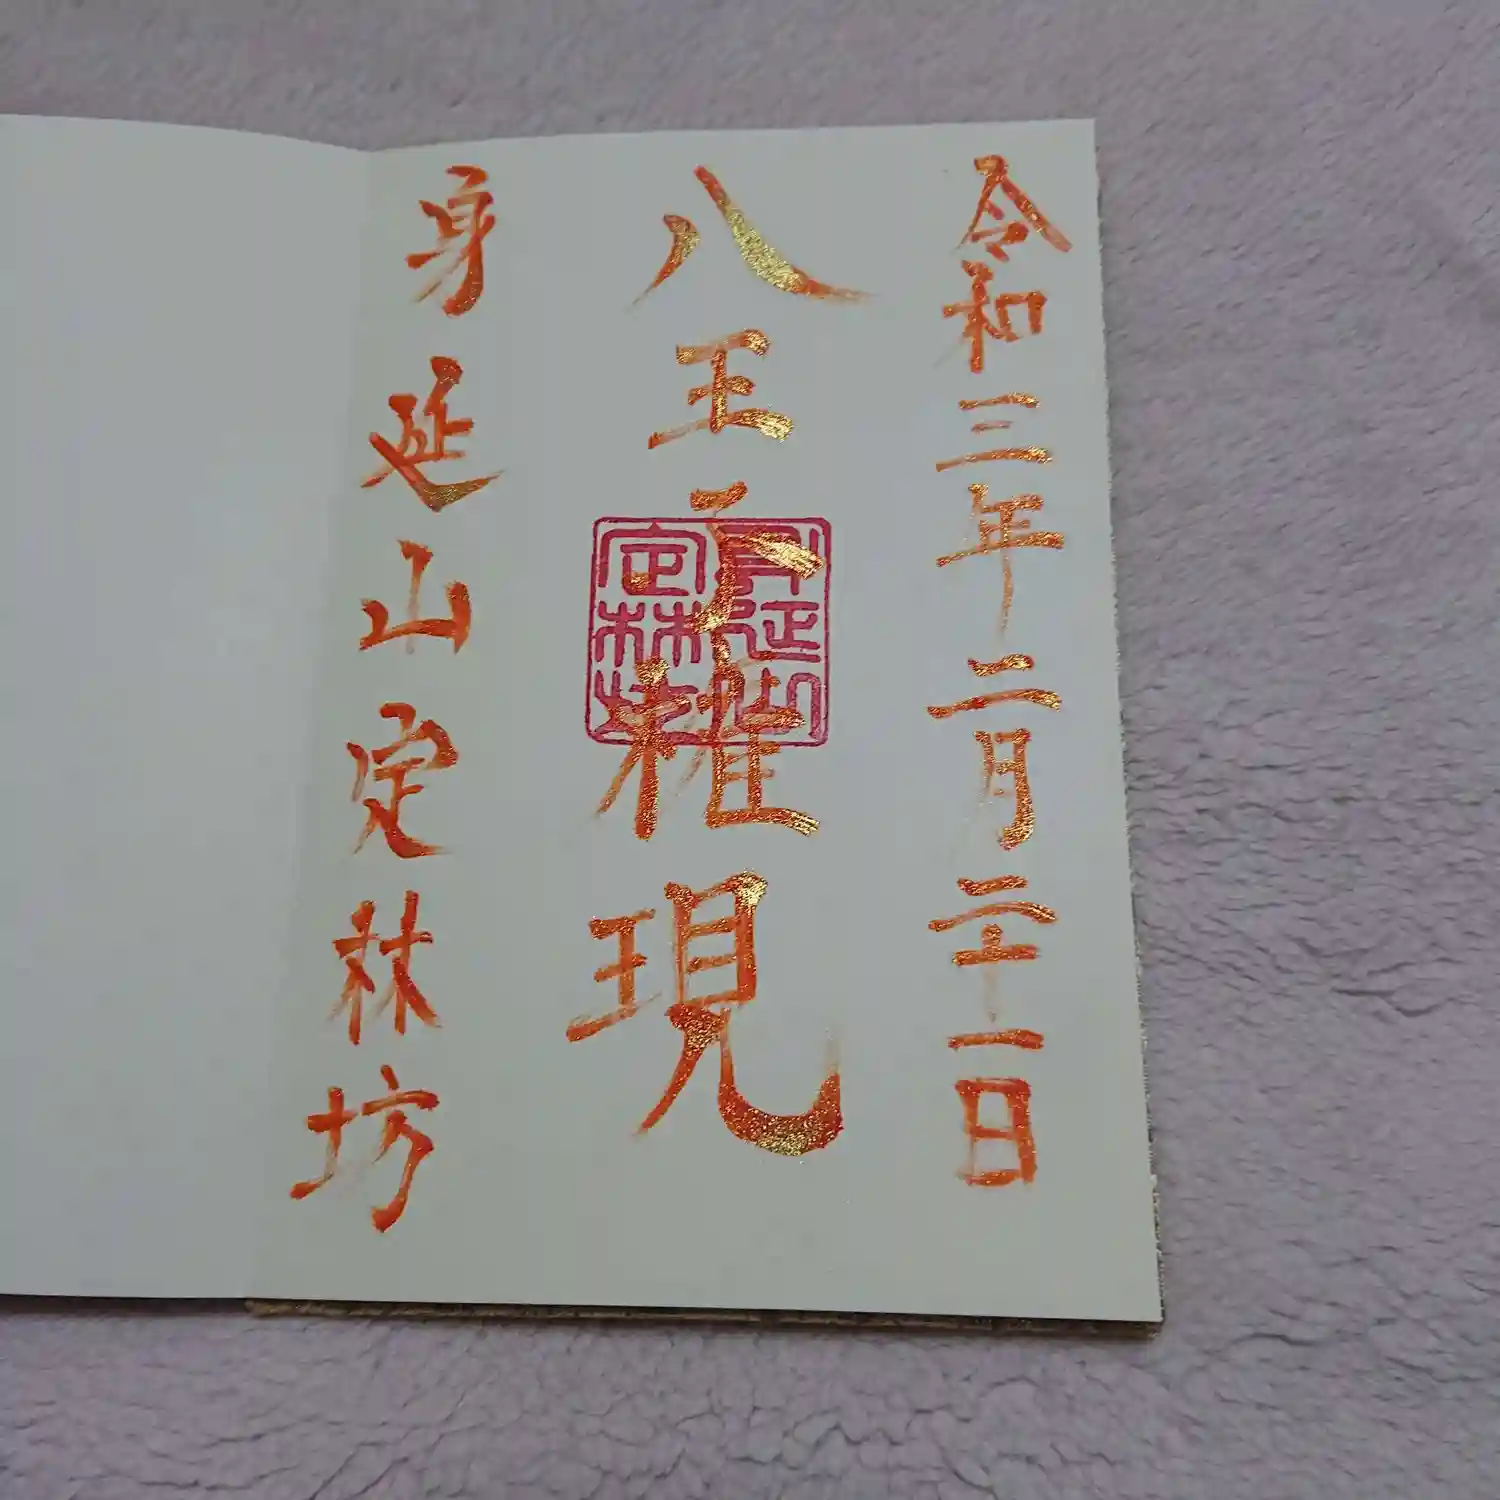 令和三年二月二十一日
八王子権現
身延山定林坊
身延山
定林坊